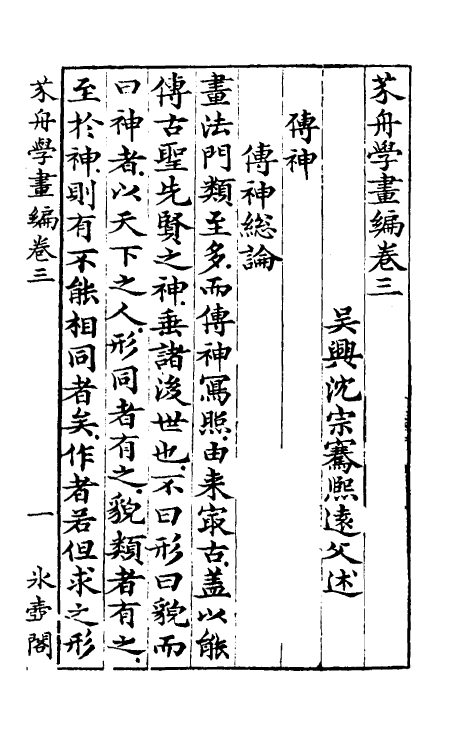 芥舟學畫編卷三
吳興沈宗騫熙遠父述
傳神
傳神総論
畫法門類至多而傳神寫照由来㝡古盖以能
傳古聖先賢之神垂諸後世也不曰形曰貌而
曰神者以天下之人形同者有之貌類者有之
至於神則有不能相同者矣作者若但求之形
芥舟學畫編卷三
一
冰壺閣